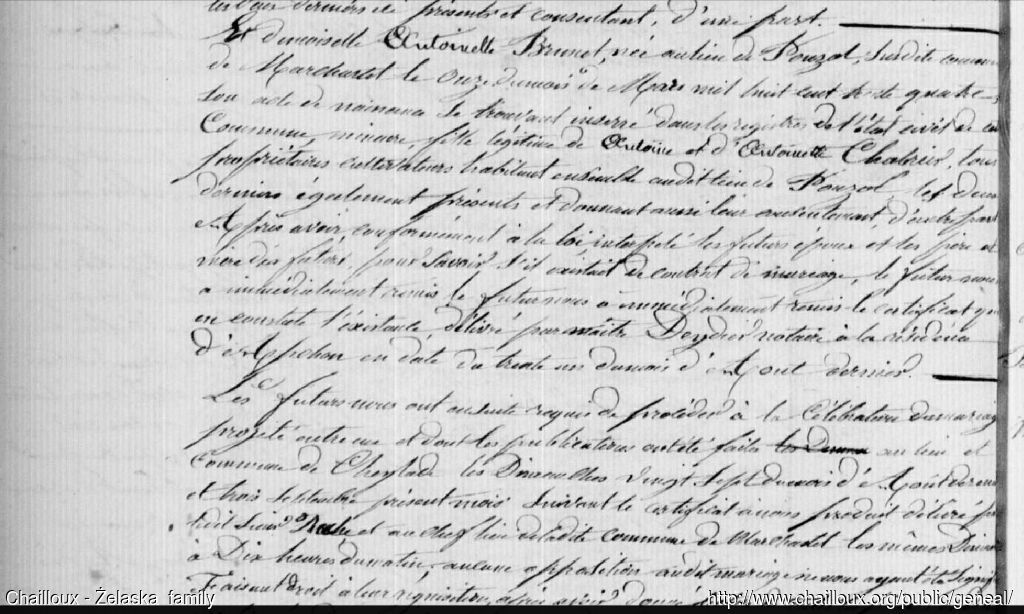 les deux derniers ici présents et consentant, d'une part.
Et demoiselle Antoinette Brunet, née au lieu de Pouzol, susdite commune
de Marchastel le onze du mois de Mars mil huit cent quatre
son acte de naissance se trouvant inserré dans les registres de l'état civil de
Commune, mineure, fille légitime de Antoine et d'Antoinette Chabrier, tous
propriétaires cultivateurs habitant ensemble audit lieu de Pouzol les deux
derniers également présents et donnant aussi leur consentement, d'autre part
Après avoir, conformément à la loi interpelé les futurs époux et les père et
mère des futurs, pour savoir s'il existait de contrat de mariage, le futur nous
a immédiatement remis le futur nous a immédiatement remis le certificat qui
en constate l'existence, délivré par maître notaire à la résidence
d'Apchon en date du trente un du mois d'Aout dernier.
Les futurs nous ont ensuite requis de procéder à la célébration du mariage
projeté entre eux et dont les publications ont été faites au lieu et
commune de Cheylade les Dimanches vingt sept du mois d'Aout dernier
et trois septembre présent mois suivant le certificat à nous produit délivré par
ledit Sieur Roche et au chef lieu de ladite commune de Marchastel les mêmes Dimanches
à Dix heures du matin, aucune opposition audit mariage ne nous ayant été
Faisant droit à leur réquisition, après avoir donné
Chailloux - Želaska family
http://www.chailloux.org/public/geneal/